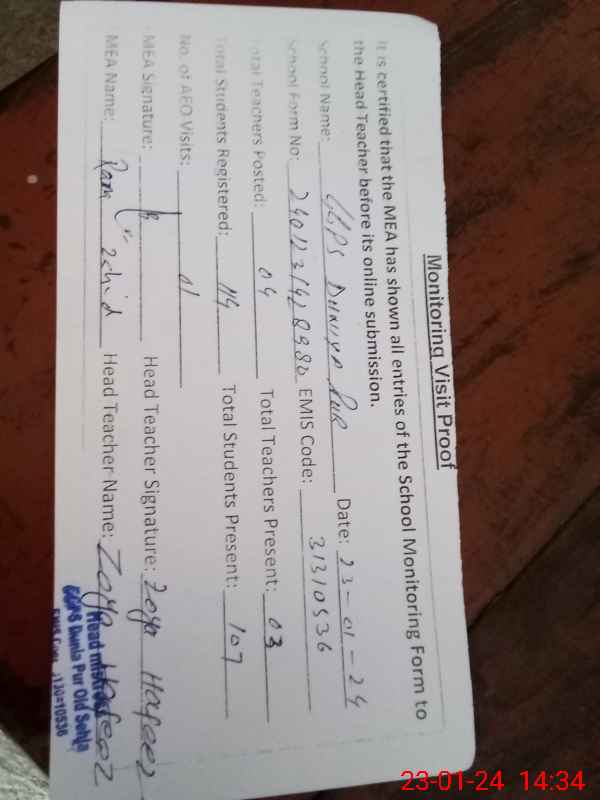 Monitoring Visit Proof
It is certified that the MEA has shown all entries of the School Monitoring Form to
the Head Teacher before its online submission.
School Name: GGPS DUNIYA PUR Date: 23-01-24
School Form No: EMIS Code: 31310536
Total Teachers Posted: 04 Total Teachers Present: 03
Total Students Registered: 114 Total Students Present: 107
No. of AEO Visits: 01
MEA Signature: Head Teacher Signature: Zoya Hafeez
MEA Name: Head Teacher Name: Zoya Hafeez
Head mistress
GGPS Dunia Pur Old Sehja
23-01-24 14:34